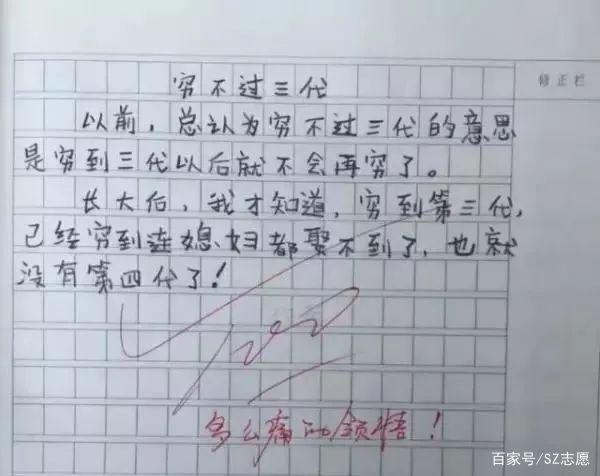 修正栏
穷不过三代
以前，总认为穷不过三代的意思
是穷到三代以后就不会再穷了。
长大后，我才知道，穷到第三代，
已经穷到连媳妇都娶不到了，也就
没有第四代了！
100
多么痛的领悟！
百家号/SZ志愿